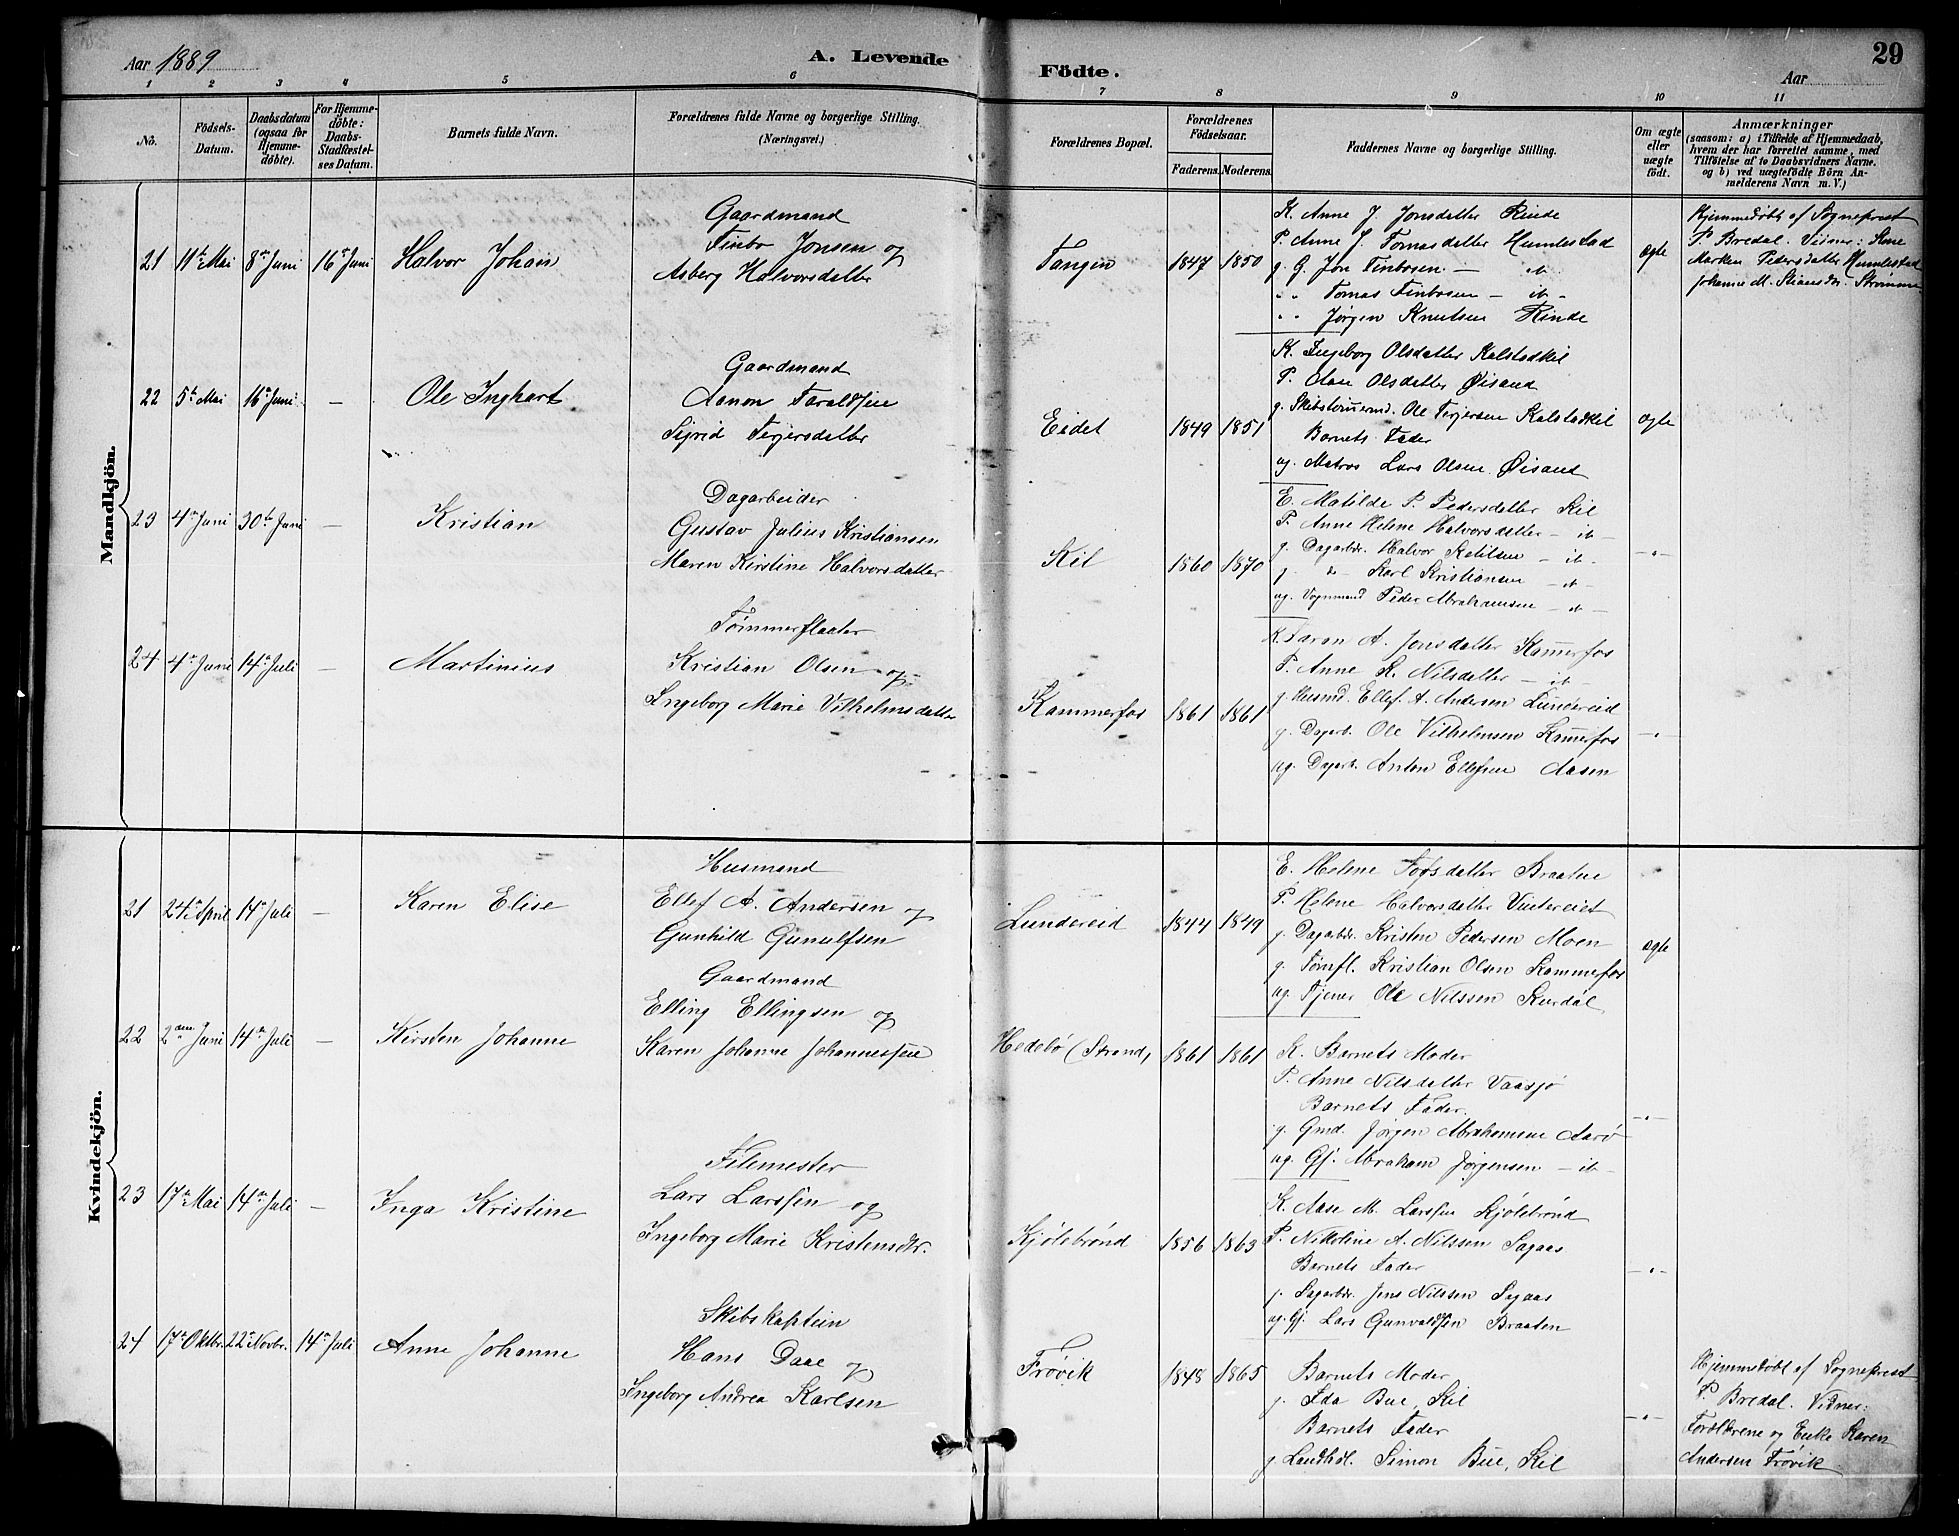 Aar 1889
A. Levende
Födte.
Aar
29
1 2 3 4 5 6 7 8 9 10 11
No.
Födsels-
Datum.
Daabsdatum
(ogsaa for
Hjemme-
döbte).
For Hjemme-
döbte:
Daabs-
Stadfæstel-
ses Datum.
Barnets fulde Navn.
Forældrenes fulde Navne og borgerlige Stilling.
(Næringsvei.)
Forældrenes Bopæl.
Forældrenes
Födselsaar.
Faderens. Moderens.
Faddernes Navne og borgerlige Stilling.
Om ægte
eller
uægte
födt.
Anmærkninger
(saasom: a) i Tilfælde af Hjemmedaab,
hvem der har forrettet samme, med
Tilföielse af to Daabsvidners Navne.
og b) ved uægtefödte Börn An-
melderens Navn m. V.)
Mandkjön.
21 11te Mai 8de Juni 16de Juni Halvor Johan
Gaardmand
Finbo Jonsen og
Asberg Halvorsdatter
Tangen 1847 1850
K. Anne J. Jonsdatter Rinde
P. Anne J. Tomasdatter Humlestad
g. G. Jon Finbosen — it -
" Tomas Finbosen — it -
" Jørgen Knutsen Rinde
ægte
Hjemmedøbt af Sogneprest
P. Bredal. Vidner:
Marken Pedersdatter Humlestad
Johanne M. Strømme
22 5te Mai 16de Juni — Ole Inghart
Gaardmand
Aanon Taraldsen
Sigrid Terjersdatter
Eidet 1849 1851
K. Ingeborg Olsdatter Kalstadkil
P. Aase Olsdatter Øisand
g. Ole Terjersen Kalstadkil
Barnets Fader
og. Matros Lars Olsen Øisand
ægte
23 4de Juni 30te Juni — Kristian
Dagarbeider
Gustav Julius Kristiansen
Maren Kirstine Halvorsdatter
Kil 1860 1870
E. Matilde P. Pedersdatter Kil
P. Anne Helene Halvorsdatter — it -
g. Dagarbdr. Halvor Ketilsen — it -
g. " Karl Kristiansen — it -
og. Vognmand Peder Abrahamsen — it -
— " —
24 4de Juni 14de Juli — Martinius
Tømmerfløter
Kristian Olsen og
Ingeborg Marie Vilhelmsdatter
Kammerfos 1861 1861
K. Saron A. Jonsdatter Kammerfos
P. Anne K. Nilsdatter — it -
g. Husmd. Ellef A. Andersen Lundereid
g. Dagarb. Ole Vilhelmsen Kammerfos
og. Dagarb. Anton Ellefsen Aasen
— " —
Kvindekjön.
21 24de April 14de Juli — Karen Elise
Husmand
Ellef A. Andersen og
Gunhild Gunulfsen
Lundereid 1844 1849
E. Helene Braaten
P. Helene Halvorsdatter Vintereiet
g. Dagarbdr. Kristen Pedersen Moen
g. Tømfl. Kristian Olsen Kammerfos
og Tjener Ole Nilssen Skurdal
ægte
22 2den Juni 14de Juli — Kirsten Johanne
Gaardmand
Elling Ellingsen og
Karen Johanne Johannessen
Hedebø (Strand) 1861 1861
K. Barnets Moder
P. Anne Nilsdatter Vaasjø
Barnets Fader
g. Gmd. Jørgen Abrahamsen Aarø
og. Gj. Abraham Jørgensen — it -
— " —
23 17de Mai 14de Juli — Inga Kristine
Filemester
Lars Larssen og
Ingeborg Marie Kristensdtr.
Kjølebrønd 1856 1863
K. Aase M. Larssen Kjølebrønd
P. Nikoline A. Nilssen Sagaas
Barnets Fader
g. Dagarbdr. Jens Nilssen Sagaas
og. Gj. Lars Gunvaldsen Braaten
— " —
24 17de Oktbr. 22de Novbr. 14de Juli Anne Johanne
Skibskaptein
Hans Daae og
Ingeborg Andrea Karlsen
Frøvik 1848 1865
Barnets Moder
g. Ida Bue, Kil
Barnets Fader
g. Landhdl. Simon Bue, Kil
— " —
Hjemmedøbt af Sogneprest
P. Bredal. Vidner:
Forældrene og Enke Karen
Andersen Frøvik